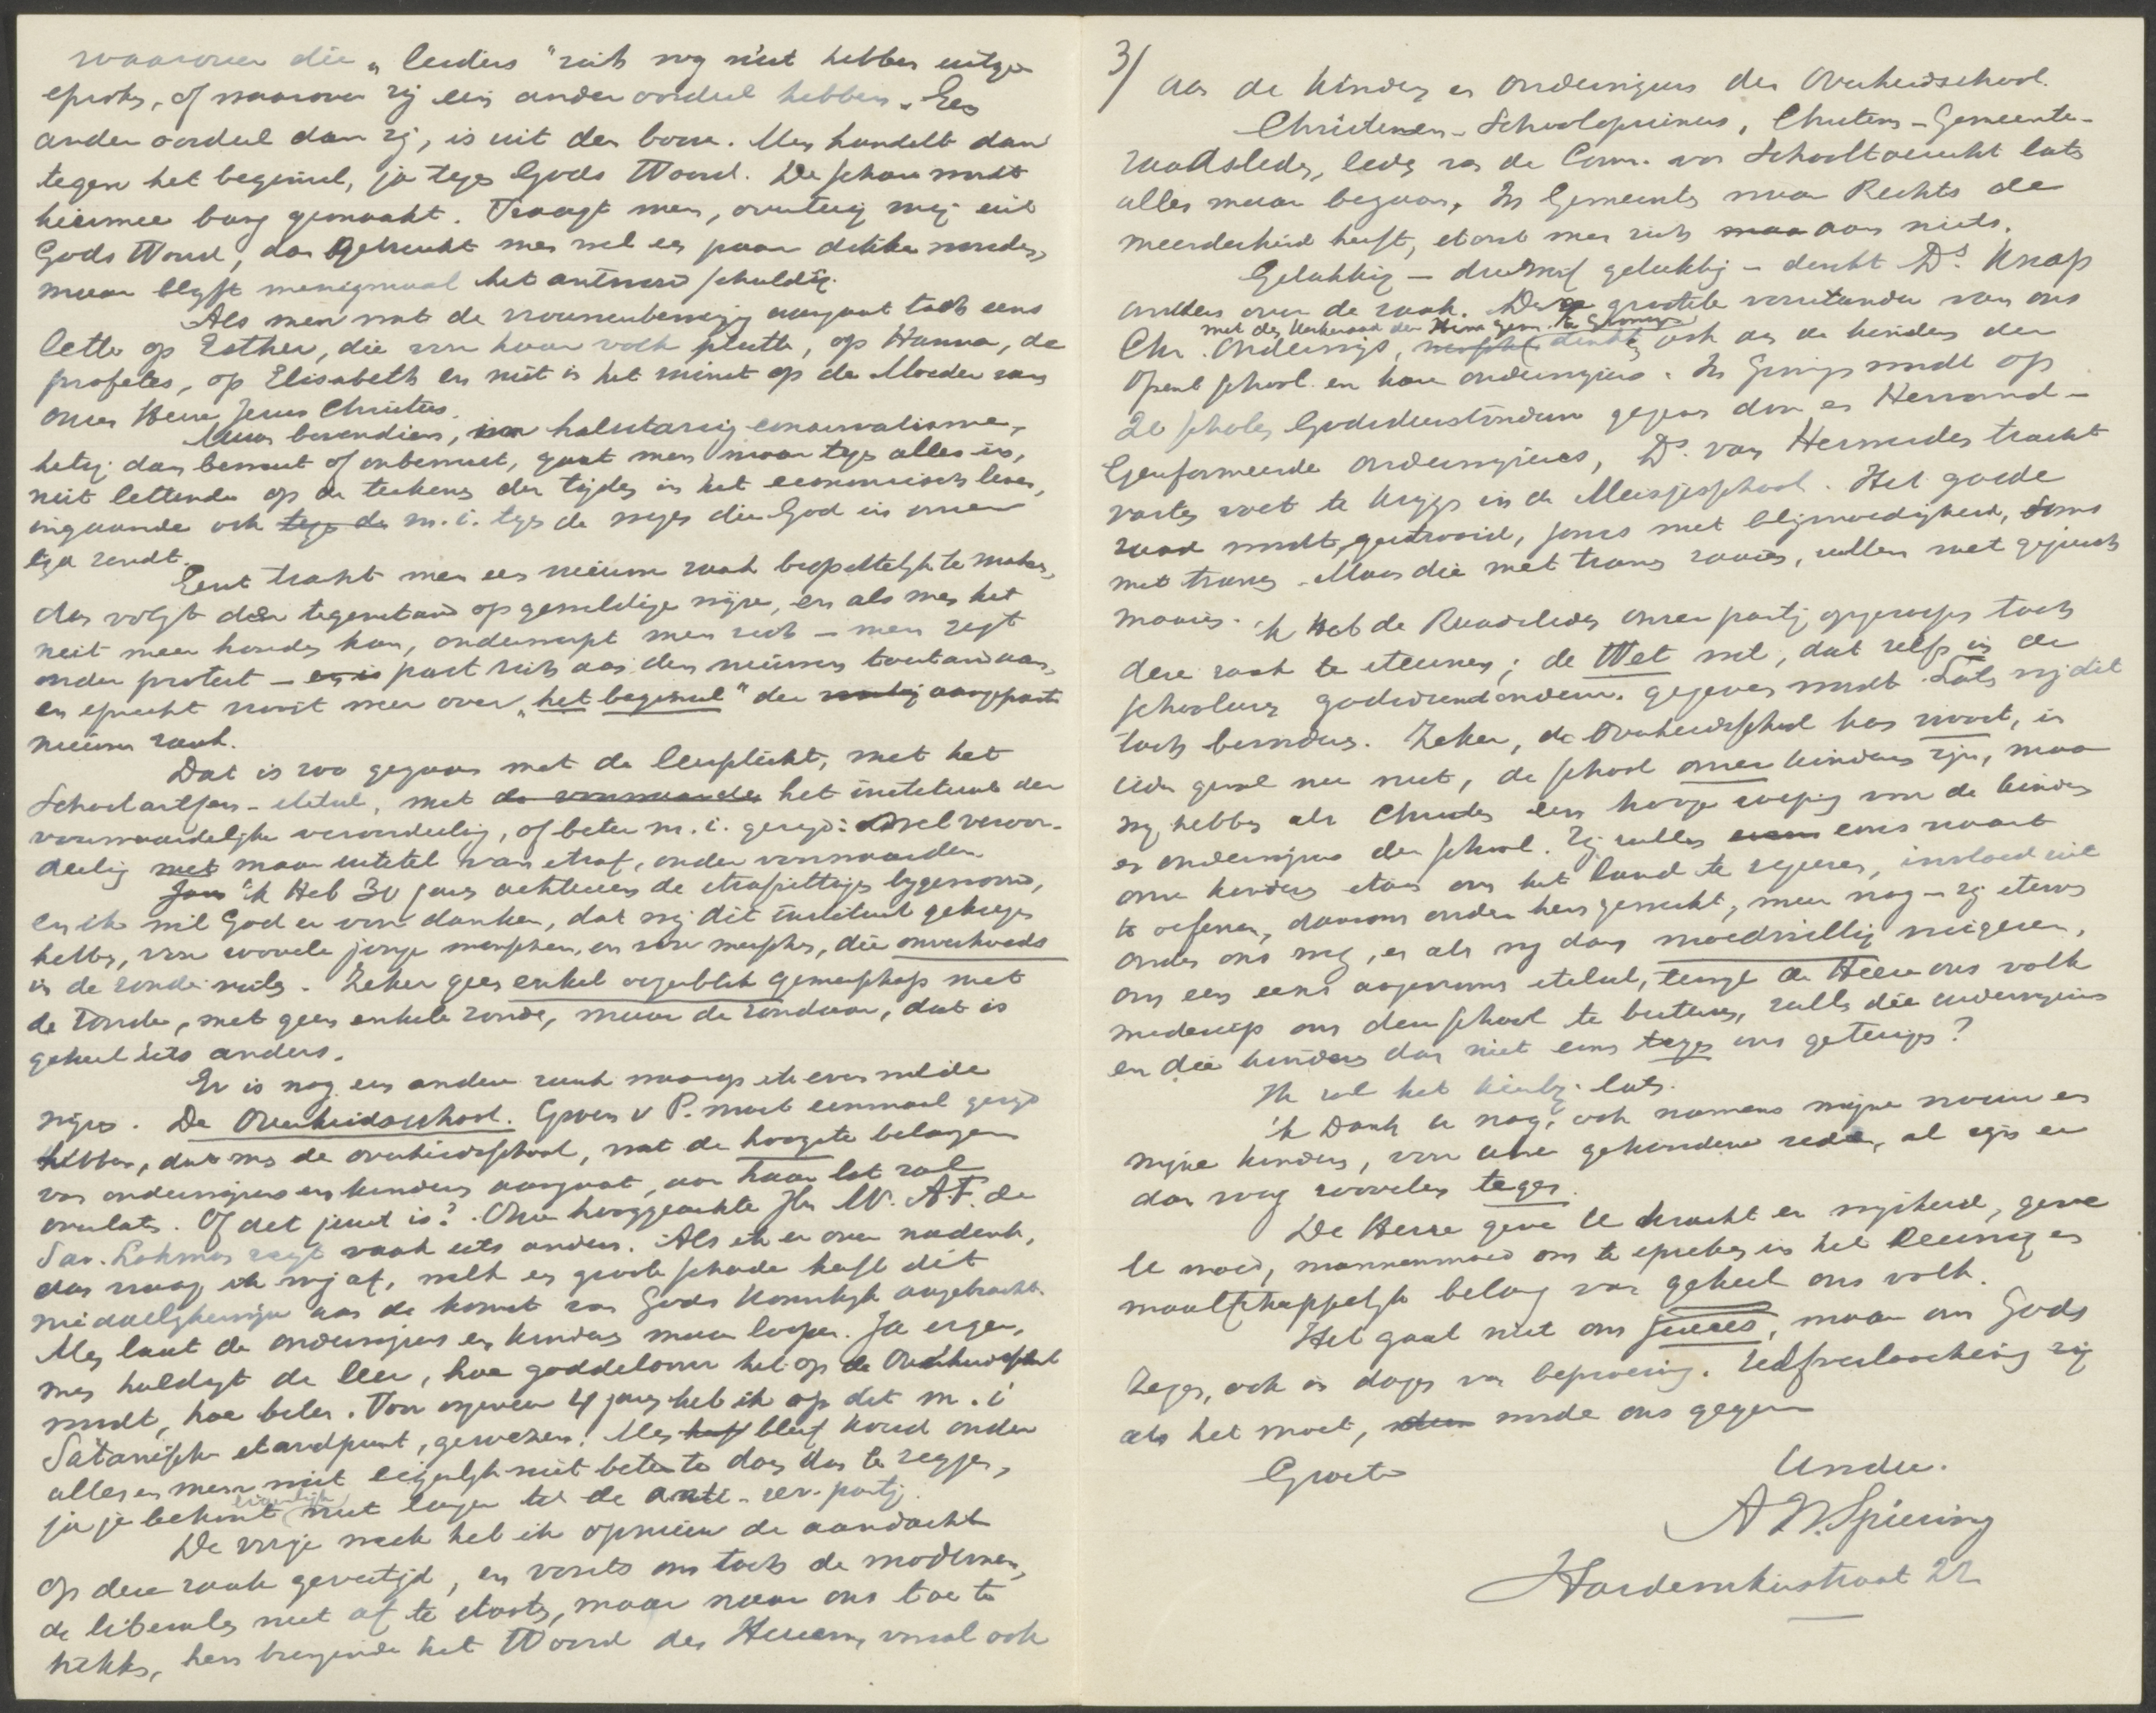 waarover die „leiders" zich nog niet hebben uitge-
sproken, of waarover zij een ander oordeel hebben. Een
ander oordeel dan zij, is uit den booze. Men handelt dan
tegen het beginsel, ja tegen Gods Woord. De schare wordt
hiermee bang gemaakt. Vraagt men, overtuig mij uit
Gods Woord, dan gebruikt men wel een paar dikke woorden,
maar blijft menigmaal het antwoord schuldig.
Als men wat de vrouwenbeweging aangaat toch eens
lette op Esther, die voor haar volk pleitte, op Hanna, de
profetes, op Elisabeth en niet in het minst op de Moeder van
onzen Heere Jezus Christus.
Maar bovendien, in halsstarrig conservatisme,
hetzij dan bewust of onbewust, gaat men maar tegen alles in,
niet lettende op de teekens der tijden in het economisch leven,
ingaande ook tegen de m.i. tegen de wegen die God in onzen
tijd zendt.
Eerst tracht men een nieuwe zaak bespottelijk te maken,
dan volgt den tegenstand op geweldige wijze, en als men het
niet meer houden kan, onderwerpt men zich – men zegt
onder protest – en is past zich aan den nieuwen toestand aan,
en spreekt nooit meer over „het beginsel" der aangepaste
nieuwe zaak.
Dat is zoo gegaan met de leerplicht, met het
Schoolartsen-stelsel, met de voorwaarden het instituut der
voorwaardelijke veroordeeling, of beter m.i. gezegd: veroor-
deeling met maar uitstel van straf, onder voorwaarden
Jan 'k Heb 30 jaar achtereen de strafzittingen bijgewoond,
en ik wil God er voor danken, dat wij dit instituut gekregen
hebben, voor zoovele jonge menschen, en voor menschen, die onverhoeds
in de zonde vielen. Zeker geen enkel oogenblik gemeenschap met
de zonde, met geen enkele zonde, maar de zondaar, dat is
geheel iets anders.
Er is nog een andere zaak waarop ik even wilde
wijzen. De Overheidsschool. Groen v P. moet eenmaal gezegd
hebben, dat men de overheidsschool, wat de hoogste belangen
van onderwijzers en kinderen aangaat, aan haar lot zal
overlaten. Of dit juist is? Onze hooggeachte Jhr Mr. A.F. de
Sav. Lohman zegt vaak iets anders. Als ik er over nadenk,
dan vraag ik mij af, welk een groote schade heeft dit
aan de komst van Gods Koninkrijk aangebracht.
Men laat de onderwijzers en kinders maar loopen. Ja erger,
men huldigt de leer, hoe goddeloozer het op de Overheidsschool
wordt, hoe beter. Voor ongeveer 4 jaar heb ik op dit m.i
Satanische standpunt, gewezen. Men heeft bleef koud onder
alles en men wist eigenlijk niet beter te doen dan te zeggen,
ja je behoort eigenlijk niet langer tot de anti-rev. partij.
De vorige week heb ik opnieuw de aandacht
op deze zaak gevestigd, en verzocht om toch de modernen,
de liberalen niet af te stooten, maar naar ons toe te
trekken, hen brengende het Woord des Heeren, vooral ook
3/ aan de kinderen en onderwijzers der Overheidschool.
Christenen-Schoolopzieners, Christen-Gemeente-
raadsleden, leden van de Comm. van Schooltoezicht laten
alles maar begaan. In Gemeenten waar Rechts de
meerderheid heeft, stoort men zich maar aan niets.
Gelukkig – driewerf gelukkig – denkt Ds. Knap
anders over de zaak. Deze grootste voorstander van ons
met den Kerkeraad der Herv. Gem. te Groningen
Chr. Onderwijs, denkt ook aan de kinders der
Openb school en hare onderwijzers. In Gron. wordt op
20 scholen Godsdienstonderw. gegeven door een Hervormd-
Gereformeerde onderwijzeres, Ds. van Herwerden tracht
vasten voet te krijgen in de Meisjesschool. Het goede
zaad wordt gestrooid, soms met blijmoedigheid, soms
met tranen. Maar die met tranen zaaien, zullen met gejuich
maaien.
'k Heb de Raadsleden onzer partij opgeroepen toch
deze zaak te steunen; de Wet wil, dat zelfs in de
schooluren godsdienstonderw. gegeven wordt. Laten wij dit
toch bevorderen. Zeker, de Overheidsschool kan nooit, in
ieder geval nu niet, de school onzer kinderen zijn, maar
wij hebben als Christen een hooge roeping voor de kinders
en onderwijzers der school. Zij zullen eens naast
onze kinders staan om het land te regeren, invloed uit
te oefenen, daarom onder hen gewerkt, meer nog – zij sterven
onder ons weg, en als wij dan moedwillig weigeren,
om een eens aangenomen stelsel, terwijl de Heere ons volk
om den school te buiten, zullen die onderwijzers
en die kinders dan niet eens tegen ons getuigen?
Ik zal het hierbij laten.
'k Dank U nog, ook namens mijne vrouw en
mijne kinders, voor Uwe gehouden rede, al zijn er
dan nog zoovelen tegen.
De Heere geve U kracht en wijsheid, geve
U moed, mannenmoed om te spreken in het
maatschappelijk belang van geheel ons volk.
Het gaat niet om succes, maar om Gods
Zegen, ook in dagen van beproeving. Zelfverloochening zij
als het moet, worde ons gegeven
Groetend
Uwdw.
A W. Spiering
Harderwijkerstraat 22